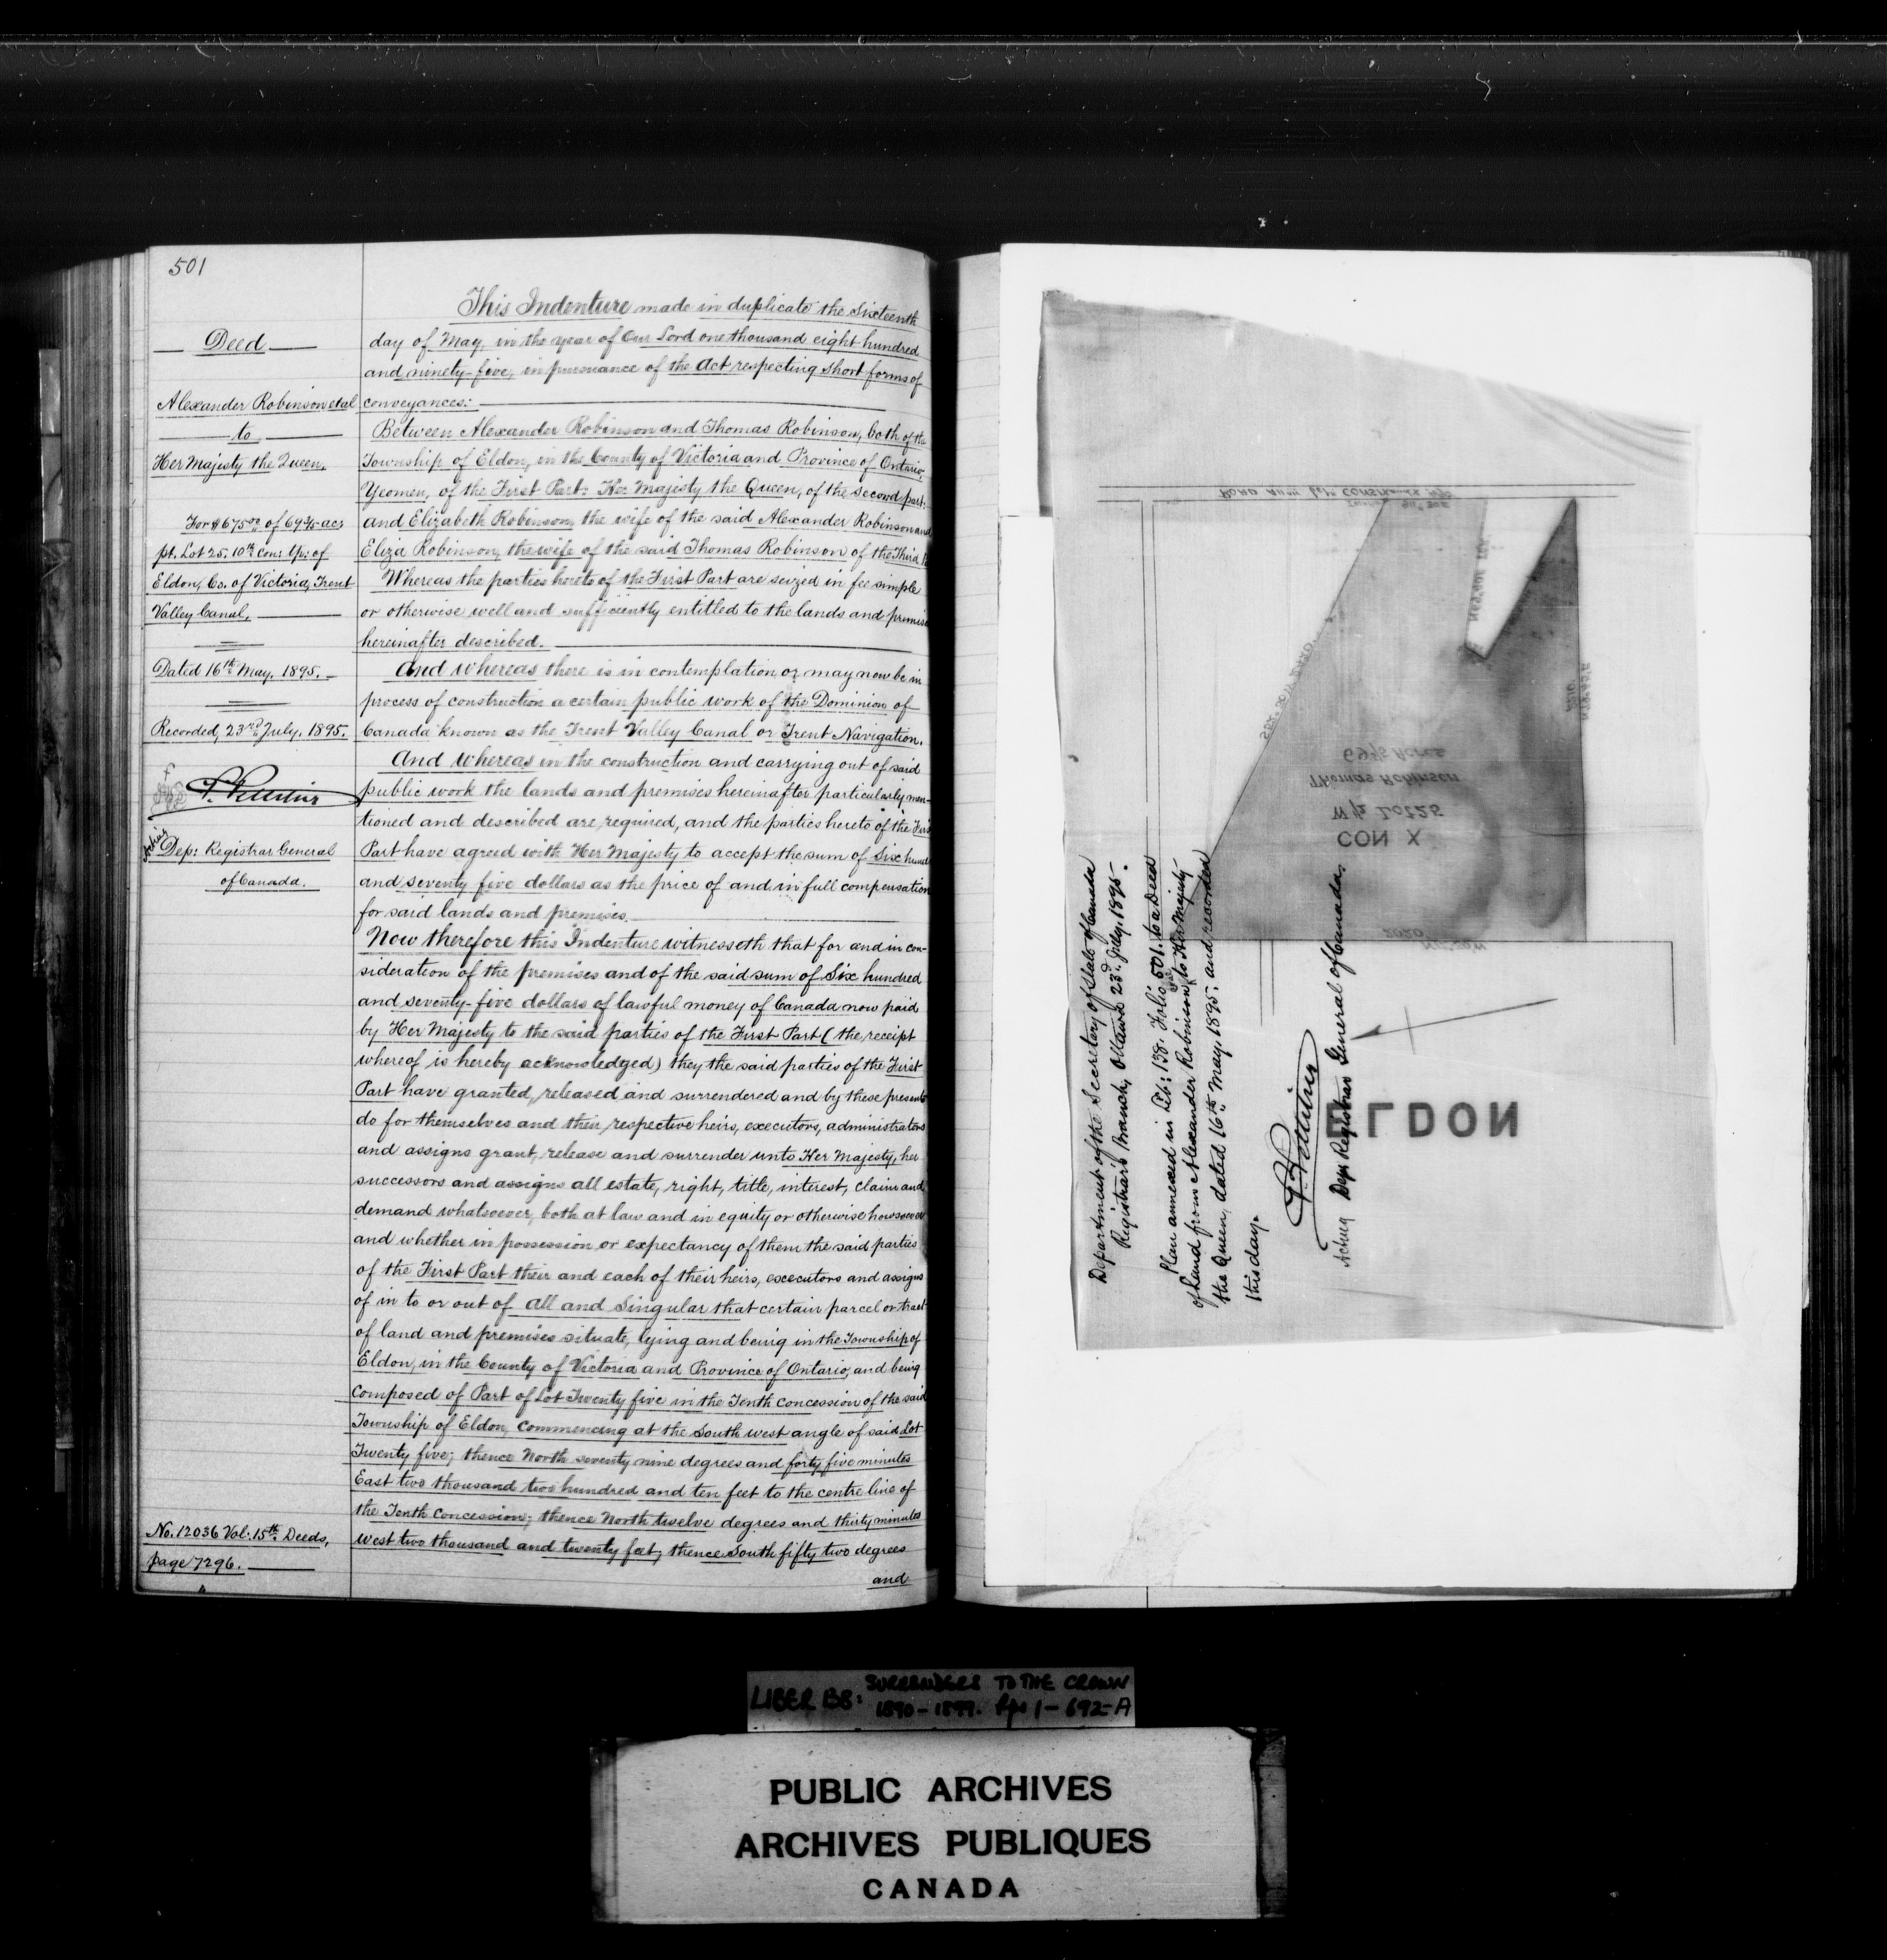 501
Deed
Alexander Robinson et al
to
Her Majesty the Queen.
For $675.00 of 69 2/5 acs
pt. Lot 25. 10th Con: Tp: of
Eldon, Co. of Victoria, Trent
Valley Canal,
Dated 16th May. 1895.
Recorded, 23rd July. 1895.
Acting
Dep: Registrar General
of Canada.
No. 12036 Vol. 15th Deeds,
page 7296.
This Indenture made in duplicate the Sixteenth
day of May, in the year of Our Lord one thousand eight hundred
and ninety-five, in pursuance of the Act respecting Short forms of
conveyances:
Between Alexander Robinson and Thomas Robinson, both of the
Township of Eldon, in the County of Victoria and Province of Ontario,
Yeomen, of the First Part: Her Majesty the Queen, of the second part:
and Elizabeth Robinson, the wife of the said Alexander Robinson and
Eliza Robinson, the wife of the said Thomas Robinson of the Third
Whereas the parties hereto of the First Part are seized in fee simple
or otherwise well and sufficiently entitled to the lands and premises
hereinafter described.
And whereas there is in contemplation or may now be in
process of construction a certain public work of the Dominion of
Canada known as the Trent Valley Canal or Trent Navigation.
And whereas in the construction and carrying out of said
public work the lands and premises hereinafter particularly men-
tioned and described are required, and the parties hereto of the First
Part have agreed with Her Majesty to accept the sum of Six hund
and seventy five dollars as the price of and in full compensation
for said lands and premises.
Now therefore this Indenture witnesseth that for and in con-
sideration of the premises and of the said sum of Six hundred
and seventy-five dollars of lawful money of Canada now paid
by Her Majesty to the said parties of the First Part (the receipt
whereof is hereby acknowledged) they the said parties of the First
Part have granted, released and surrendered and by these presents
do for themselves and their respective heirs, executors, administrators
and assigns grant, release and surrender unto Her Majesty, her
successors and assigns all estate, right, title, interest, claim and
demand whatsoever, both at law and in equity or otherwise howsoever
and whether in possession or expectancy of them the said parties
of the First Part their and each of their heirs, executors and assigns
of in to or out of all and Singular that certain parcel or tract
of land and premises situate, lying and being in the Township of
Eldon, in the County of Victoria and Province of Ontario, and being
composed of Part of Lot Twenty five in the Tenth concession of the said
Township of Eldon, commencing at the South west angle of said Lot
Twenty five; thence North seventy nine degrees and forty five minutes
East two thousand two hundred and ten feet to the centre line of
the Tenth Concession; thence North twelve degrees and thirty minutes
west two thousand and twenty feet; thence South fifty two degrees
and
CON X
W½ Lot 25
Thomas Robinson
69⅖ Acres
2020
ELDON
Department of the Secretary of State of Canada
Registrar's Branch, Ottawa 23rd July, 1895.
Plan annexed in Lib: 138. Folio 501. to a Deed
of Land from Alexander Robinson to Her Majesty
the Queen, dated 16th May. 1895. and recorded
this day.
Acting Dep: Registrar General of Canada
LIBER BB: SURRENDERS TO THE CROWN
1890-1899. Pps 1-692-A
PUBLIC ARCHIVES
ARCHIVES PUBLIQUES
CANADA